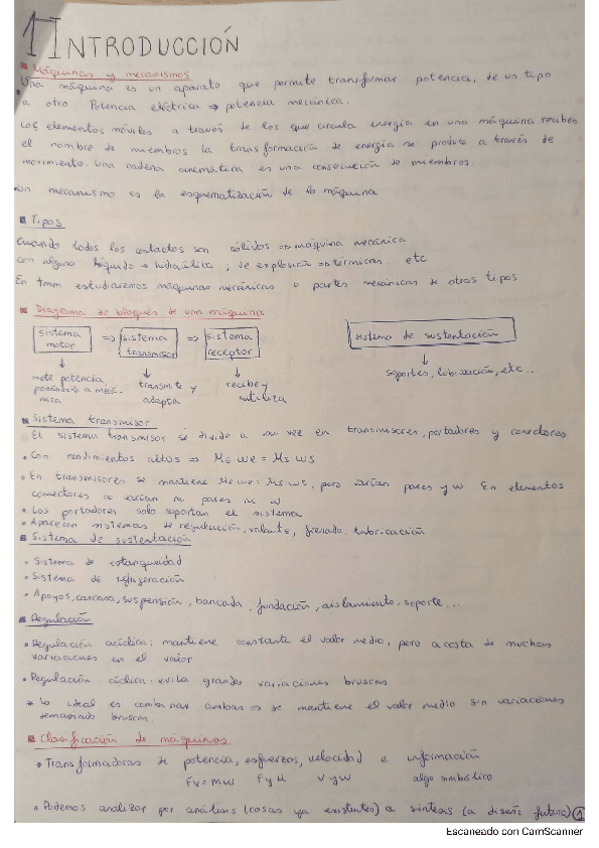 1 INTRODUCCIÓN
Máquinas y mecanismos
Una máquina es un aparato que permite transformar potencia, de un tipo
a otro. Potencia eléctrica → potencia mecánica.
Los elementos móviles a través de los que circula energía en una máquina reciben
el nombre de miembros la transformación de energía se produce a través de
movimiento. Una cadena cinemática es una consecución de miembros.
Un mecanismo es la esquematización de la máquina
Tipos
Cuando todos los contactos son sólidos ⇒ máquina mecánica
con alguno líquido → hidraúlica ; de explosión ⇒ térmicas... etc
En tmm estudiaremos máquinas mecánicas o partes mecánicas de otros tipos
Diagrama de bloques de una máquina
sistema motor ⇒ sistema transmisor ⇒ sistema receptor
sistema de sustentación
mete potencia,
transmite y adapta
recibe y utiliza
soportes, lubricación, etc...
Sistema transmisor
El sistema transmisor se divide a su vez en transmisores, portadores y conectores
• Con rendimientos altos ⇒ Me we = Ms ws
• En transmisores se mantiene Me we = Ms ws, pero varían pares y w En elementos
conectores no varían ni pares ni w
• Los portadores solo soportan el sistema
• Aparecen sistemas de regulación, volante, frenado, lubricación
Sistema de sustentación
• Sistema de estanqueidad
• Sistema de refrigeración
• Apoyos, carcasa, suspensión, bancada, fundación, aislamiento, soporte...
Regulación
• Regulación acíclica: mantiene constante el valor medio, pero a costa de muchas
variaciones en el valor
• Regulación cíclica: evita grandes variaciones bruscas
* Lo ideal es combinar ambas ⇒ se mantiene el valor medio sin variaciones
demasiado bruscas.
Clasificación de máquinas
• Transformadoras de potencia, esfuerzos, velocidad e información
Fv = mw F y M v y w algo simbólico
• Podemos analizar por análisis (cosas ya existentes) o síntesis (a diseño futuro) 1
Escaneado con CamScanner